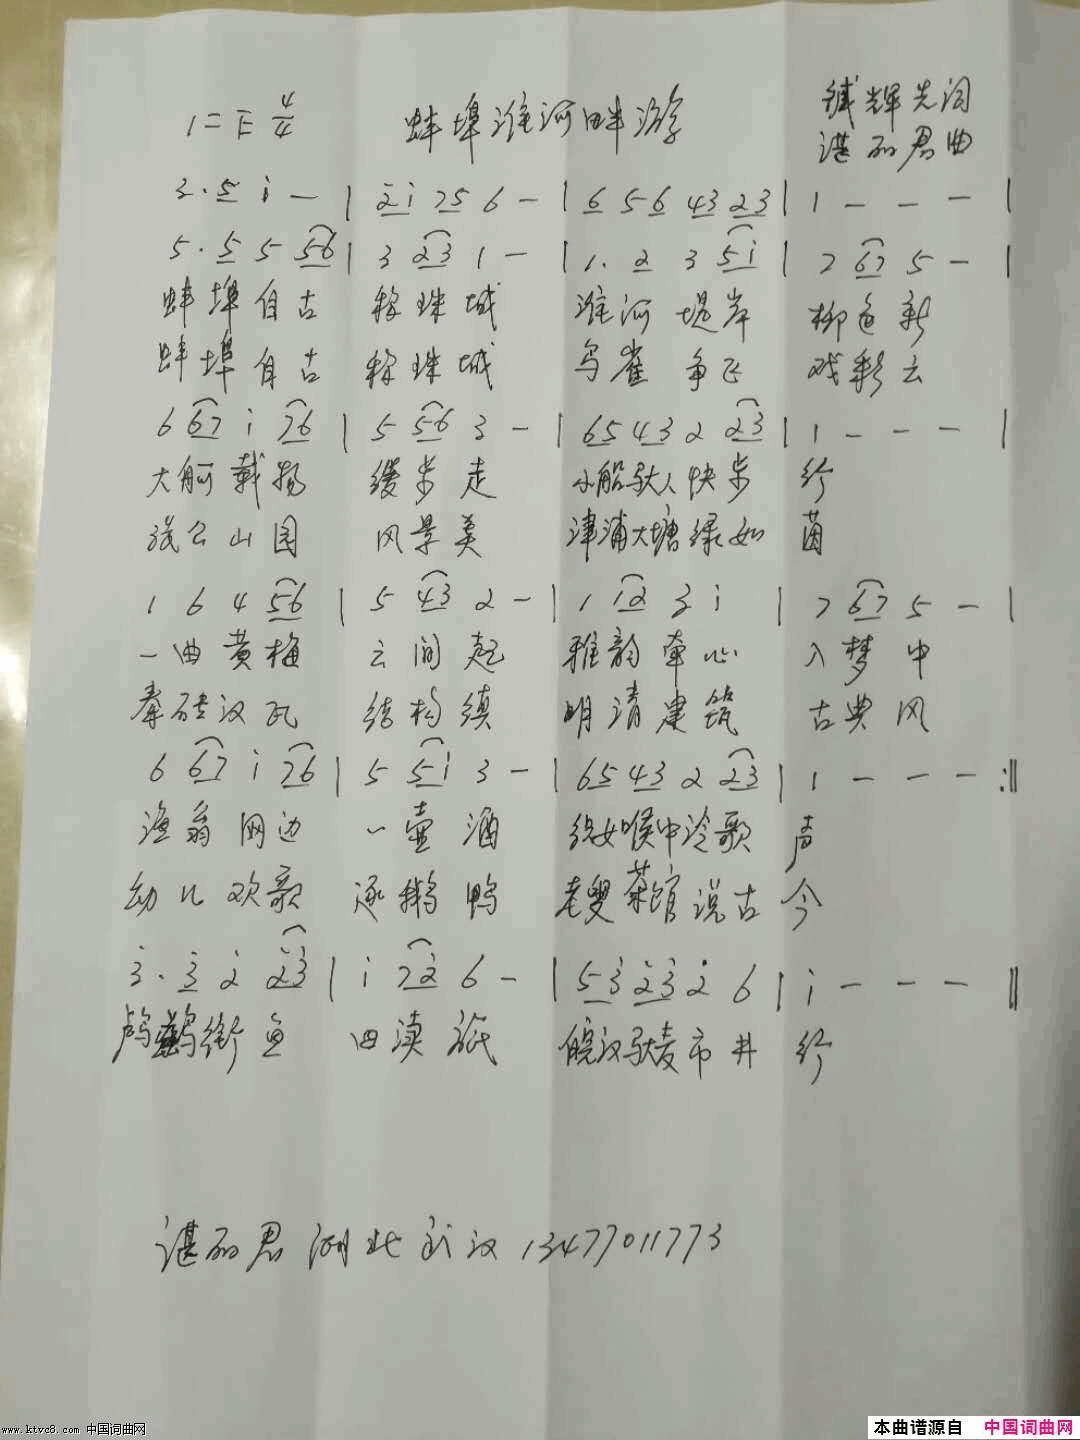 1=F 4/4 蚌埠淮河畔游 辉先词
谌丽君曲
3·5 i - | 2i 75 6 - | 6 5 6 43 23 | 1 - - - |
5·5 5 56 | 3 23 1 - | 1·2 3 5i | 7 67 5 - |
蚌埠自古 称珠城 淮河堤岸 柳色新
蚌埠自古 称珠城 鸟雀争飞 戏彩云
6 67 i 76 | 5 56 3 - | 65 43 2 23 | 1 - - - |
大舸载物 缓步走 小船驮人快步 行
张公山园 风景美 津浦大塘绿如 茵
1 6 4 56 | 5 43 2 - | 1 12 3 i | 7 67 5 - |
一曲黄梅 云间起 雅韵牵心 入梦中
秦砖汉瓦 结构缜 明清建筑 古典风
6 67 i 76 | 5 5i 3 - | 65 43 2 23 | 1 - - - :‖
渔翁网边 一壶酒 喉中冷歌 声
幼儿欢歌 逐鹅鸭 老叟茶馆说古 今
3·3 2 23 | i 72 6 - | 53 23 2 6 | i - - - ‖
鸬鹚衔鱼 四渎 皖汉驮麦市井 行
谌丽君 湖北武汉 13477011773
www.ktvc8.com 中国词曲网
本曲谱源自 中国词曲网